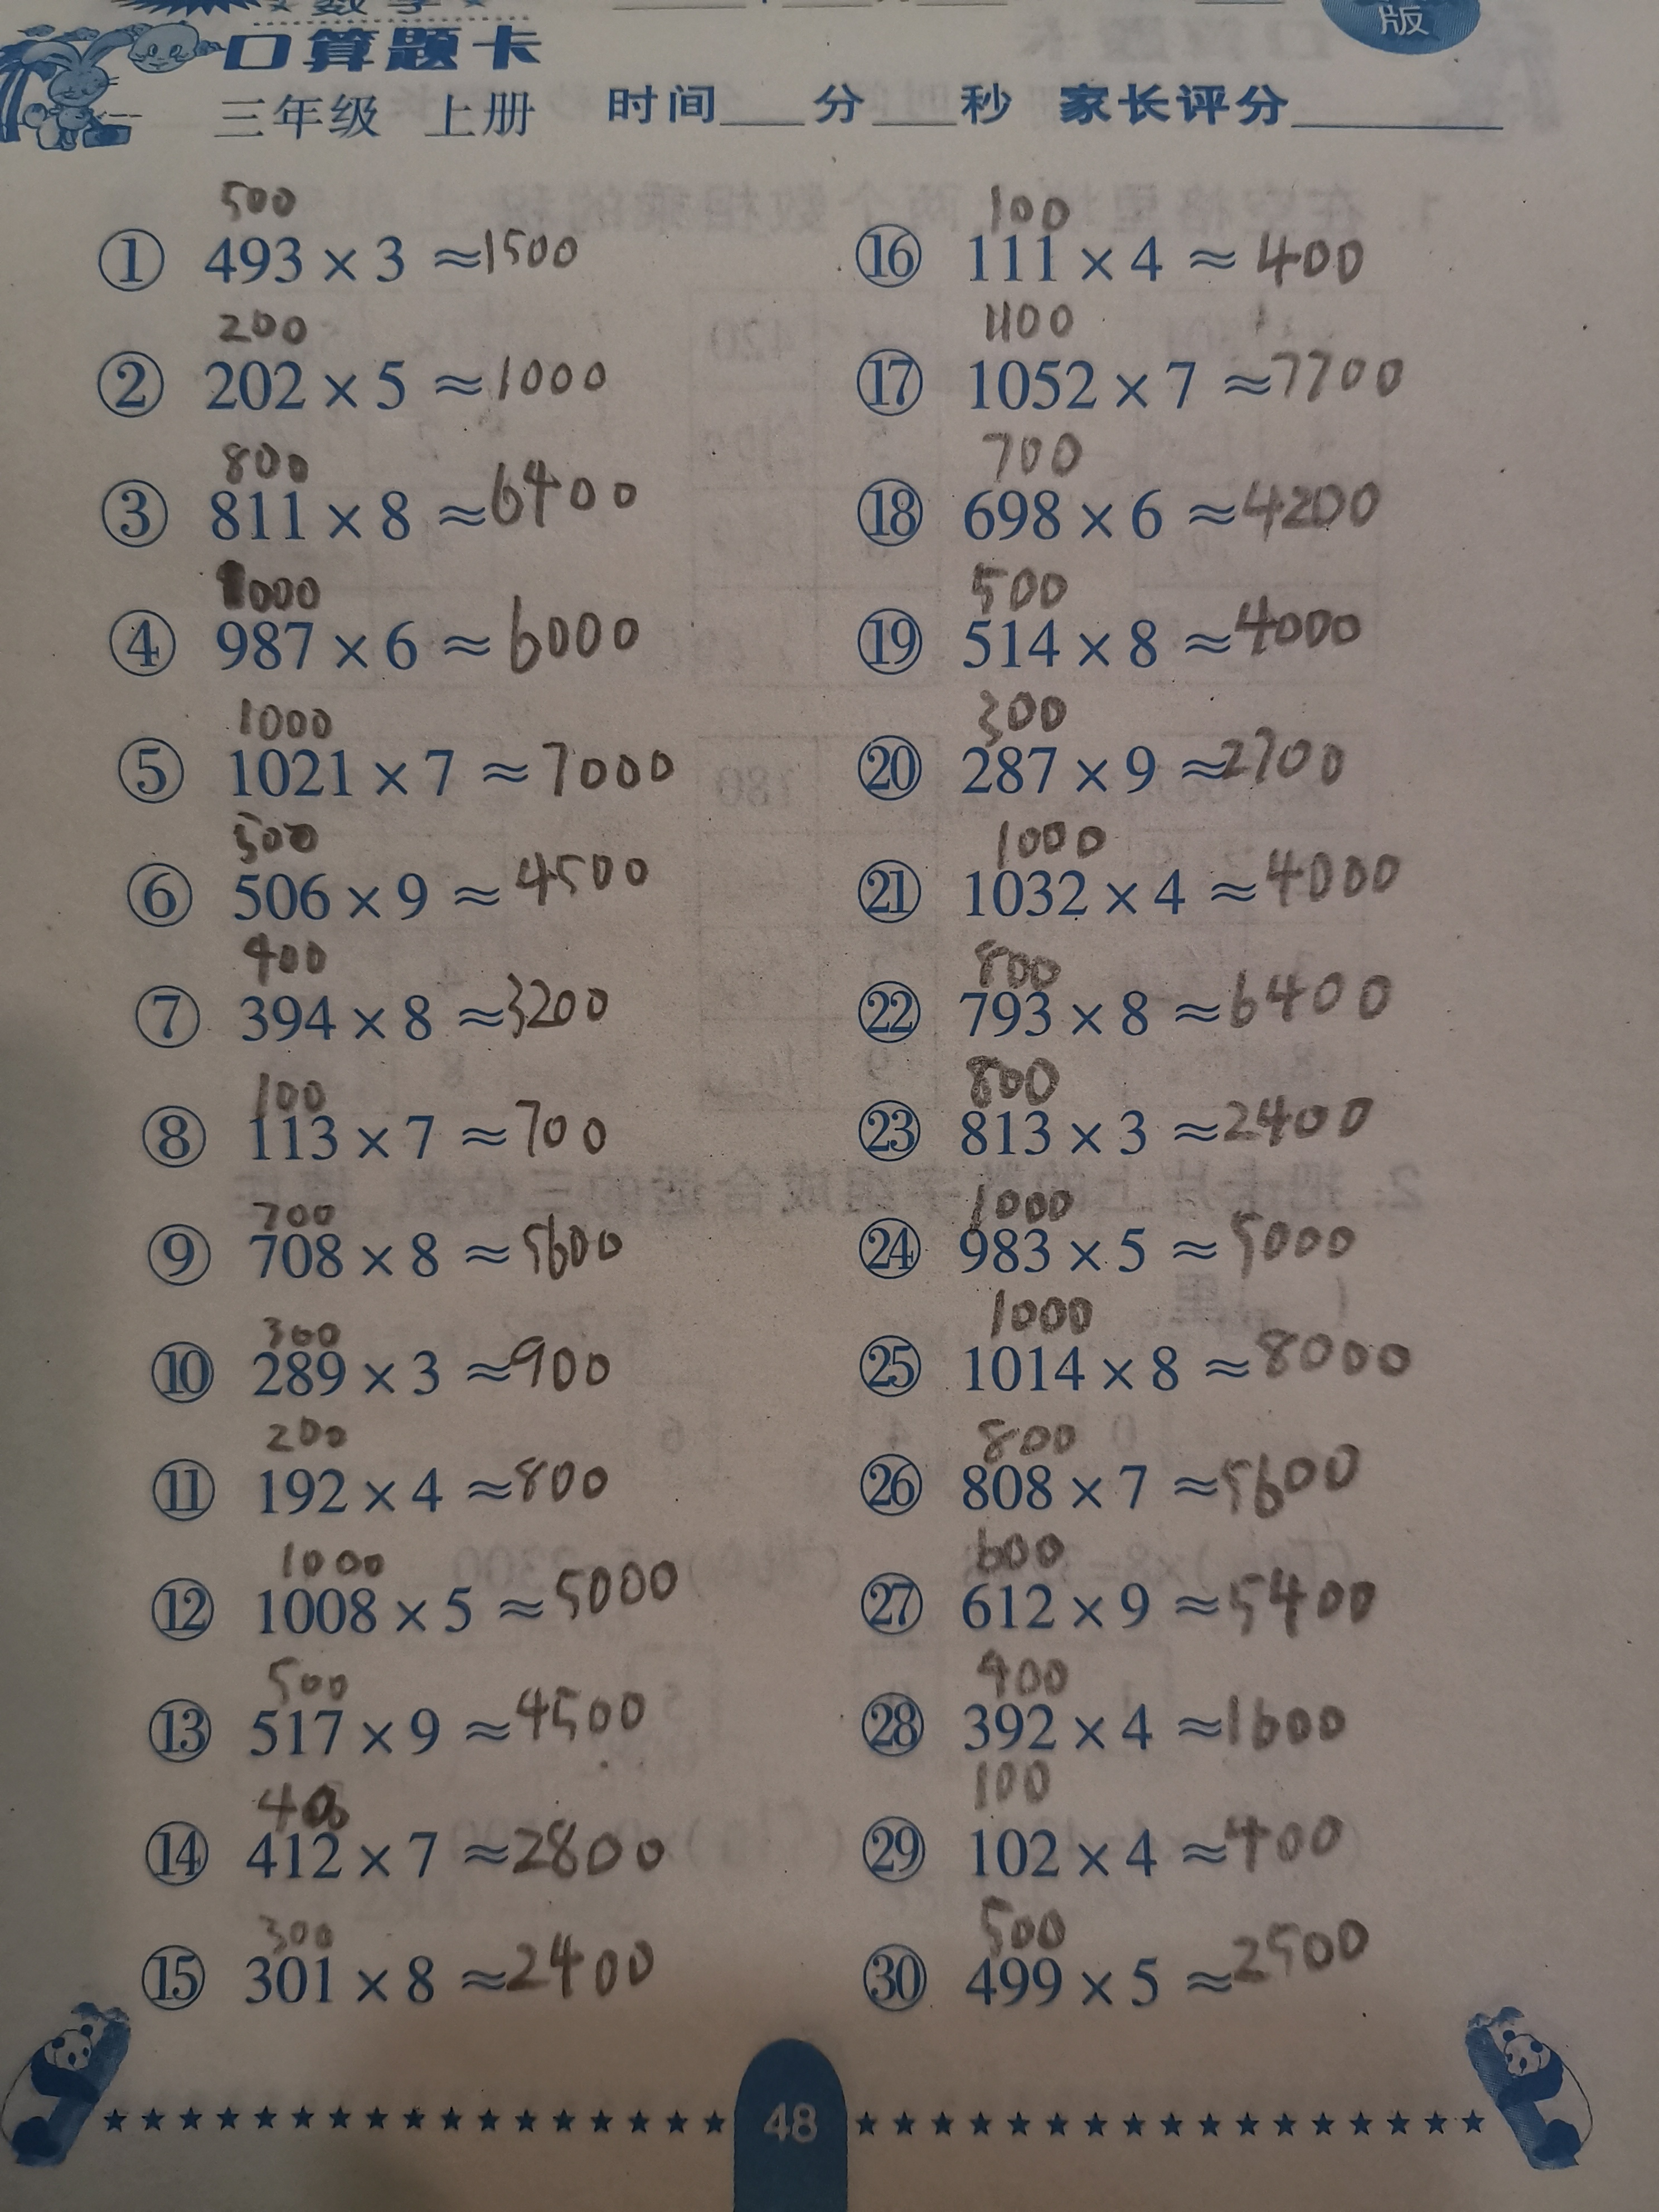 数学
版
口算题卡
三年级 上册 时间___分___秒 家长评分______
500
① 493 × 3 ≈1500
200
② 202 × 5 ≈1000
800
③ 811 × 8 ≈6400
1000
④ 987 × 6 ≈ 6000
1000
⑤ 1021 × 7 ≈ 7000
500
⑥ 506 × 9 ≈ 4500
400
⑦ 394 × 8 ≈3200
100
⑧ 113 × 7 ≈ 700
700
⑨ 708 × 8 ≈ 5600
300
⑩ 289 × 3 ≈900
200
⑪ 192 × 4 ≈800
1000
⑫ 1008 × 5 ≈ 5000
500
⑬ 517 × 9 ≈4500
400
⑭ 412 × 7 ≈2800
300
⑮ 301 × 8 ≈2400
100
⑯ 111 × 4 ≈ 400
1100
⑰ 1052 × 7 ≈7700
700
⑱ 698 × 6 ≈4200
500
⑲ 514 × 8 ≈4000
300
⑳ 287 × 9 ≈2700
1000
㉑ 1032 × 4 ≈4000
800
㉒ 793 × 8 ≈6400
800
㉓ 813 × 3 ≈2400
1000
㉔ 983 × 5 ≈ 5000
1000
㉕ 1014 × 8 ≈8000
800
㉖ 808 × 7 ≈5600
600
㉗ 612 × 9 ≈5400
400
㉘ 392 × 4 ≈1600
100
㉙ 102 × 4 ≈400
500
㉚ 499 × 5 ≈2500
48